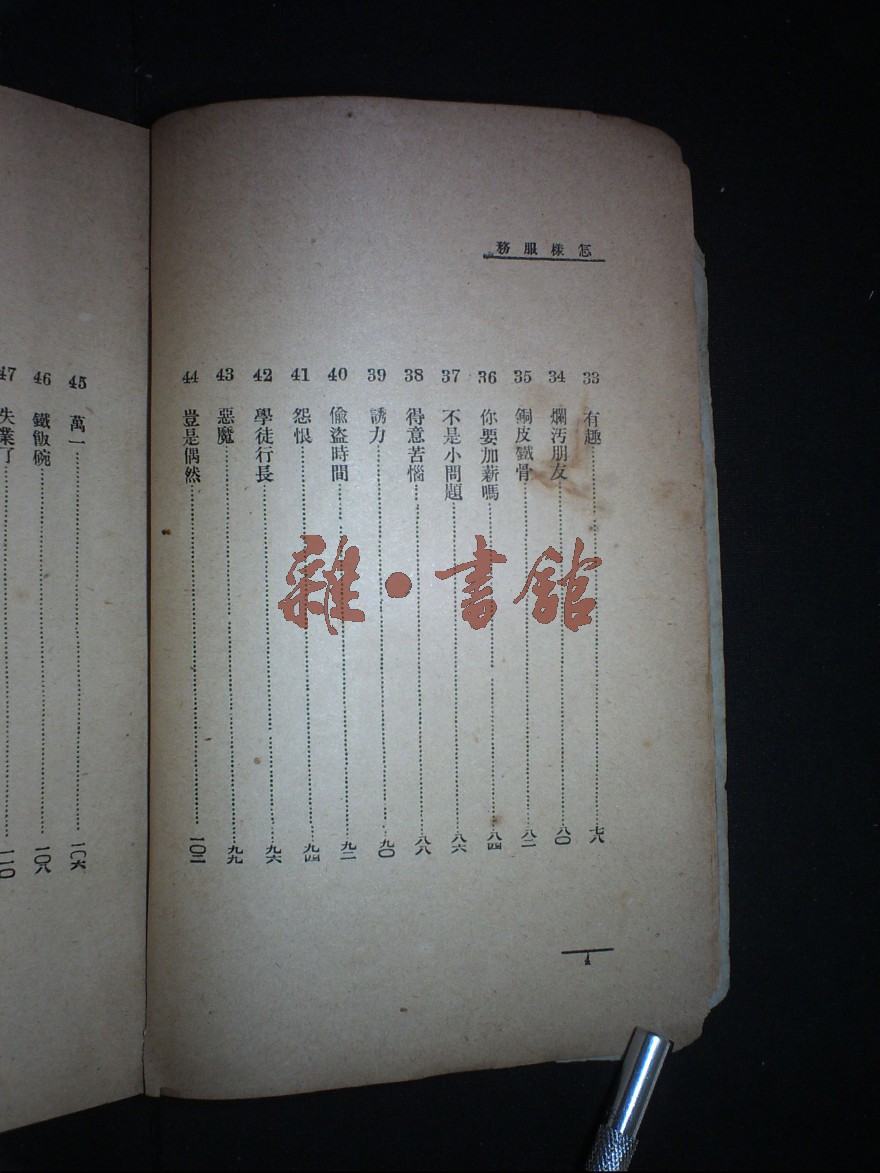 怎樣服務
33 有趣……七八
34 爛污朋友……八〇
35 銅皮鐵骨……八二
36 你要加薪嗎……八四
37 不是小問題……八六
38 得意苦惱……八八
39 誘力……九〇
40 偷盜時間……九二
41 怨恨……九四
42 學徒行長……九六
43 惡魔……九九
44 豈是偶然……一〇二
45 萬一……一〇六
46 鐵飯碗……一〇八
47 失業了……一一〇
雜·書館